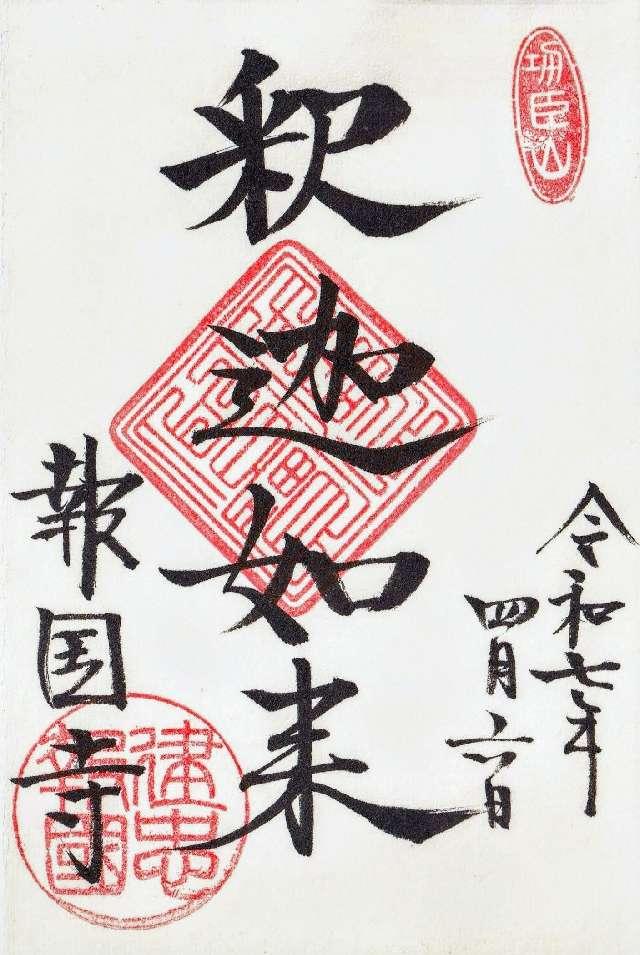 功臣山
令和七年
四月六日
釈迦如来
報国寺
建忠
報國